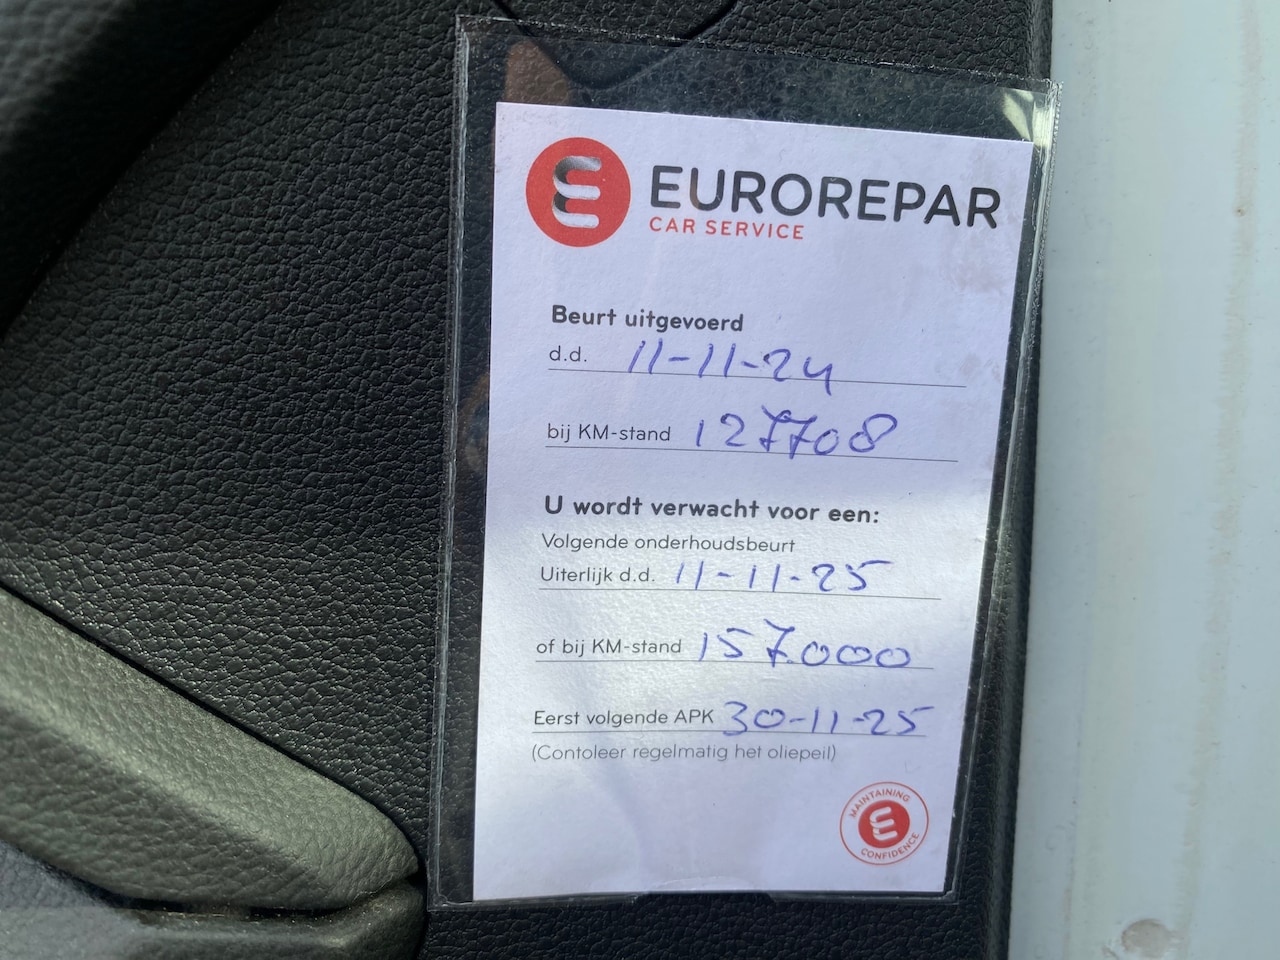 EUROREPAR
CAR SERVICE
Beurt uitgevoerd
d.d. 11-11-24
bij KM-stand 127708
U wordt verwacht voor een:
Volgende onderhoudsbeurt
Uiterlijk d.d. 11-11-25
of bij KM-stand 157000
Eerst volgende APK 30-11-25
(Contoleer regelmatig het oliepeil)
MAINTAINING
CONFIDENCE